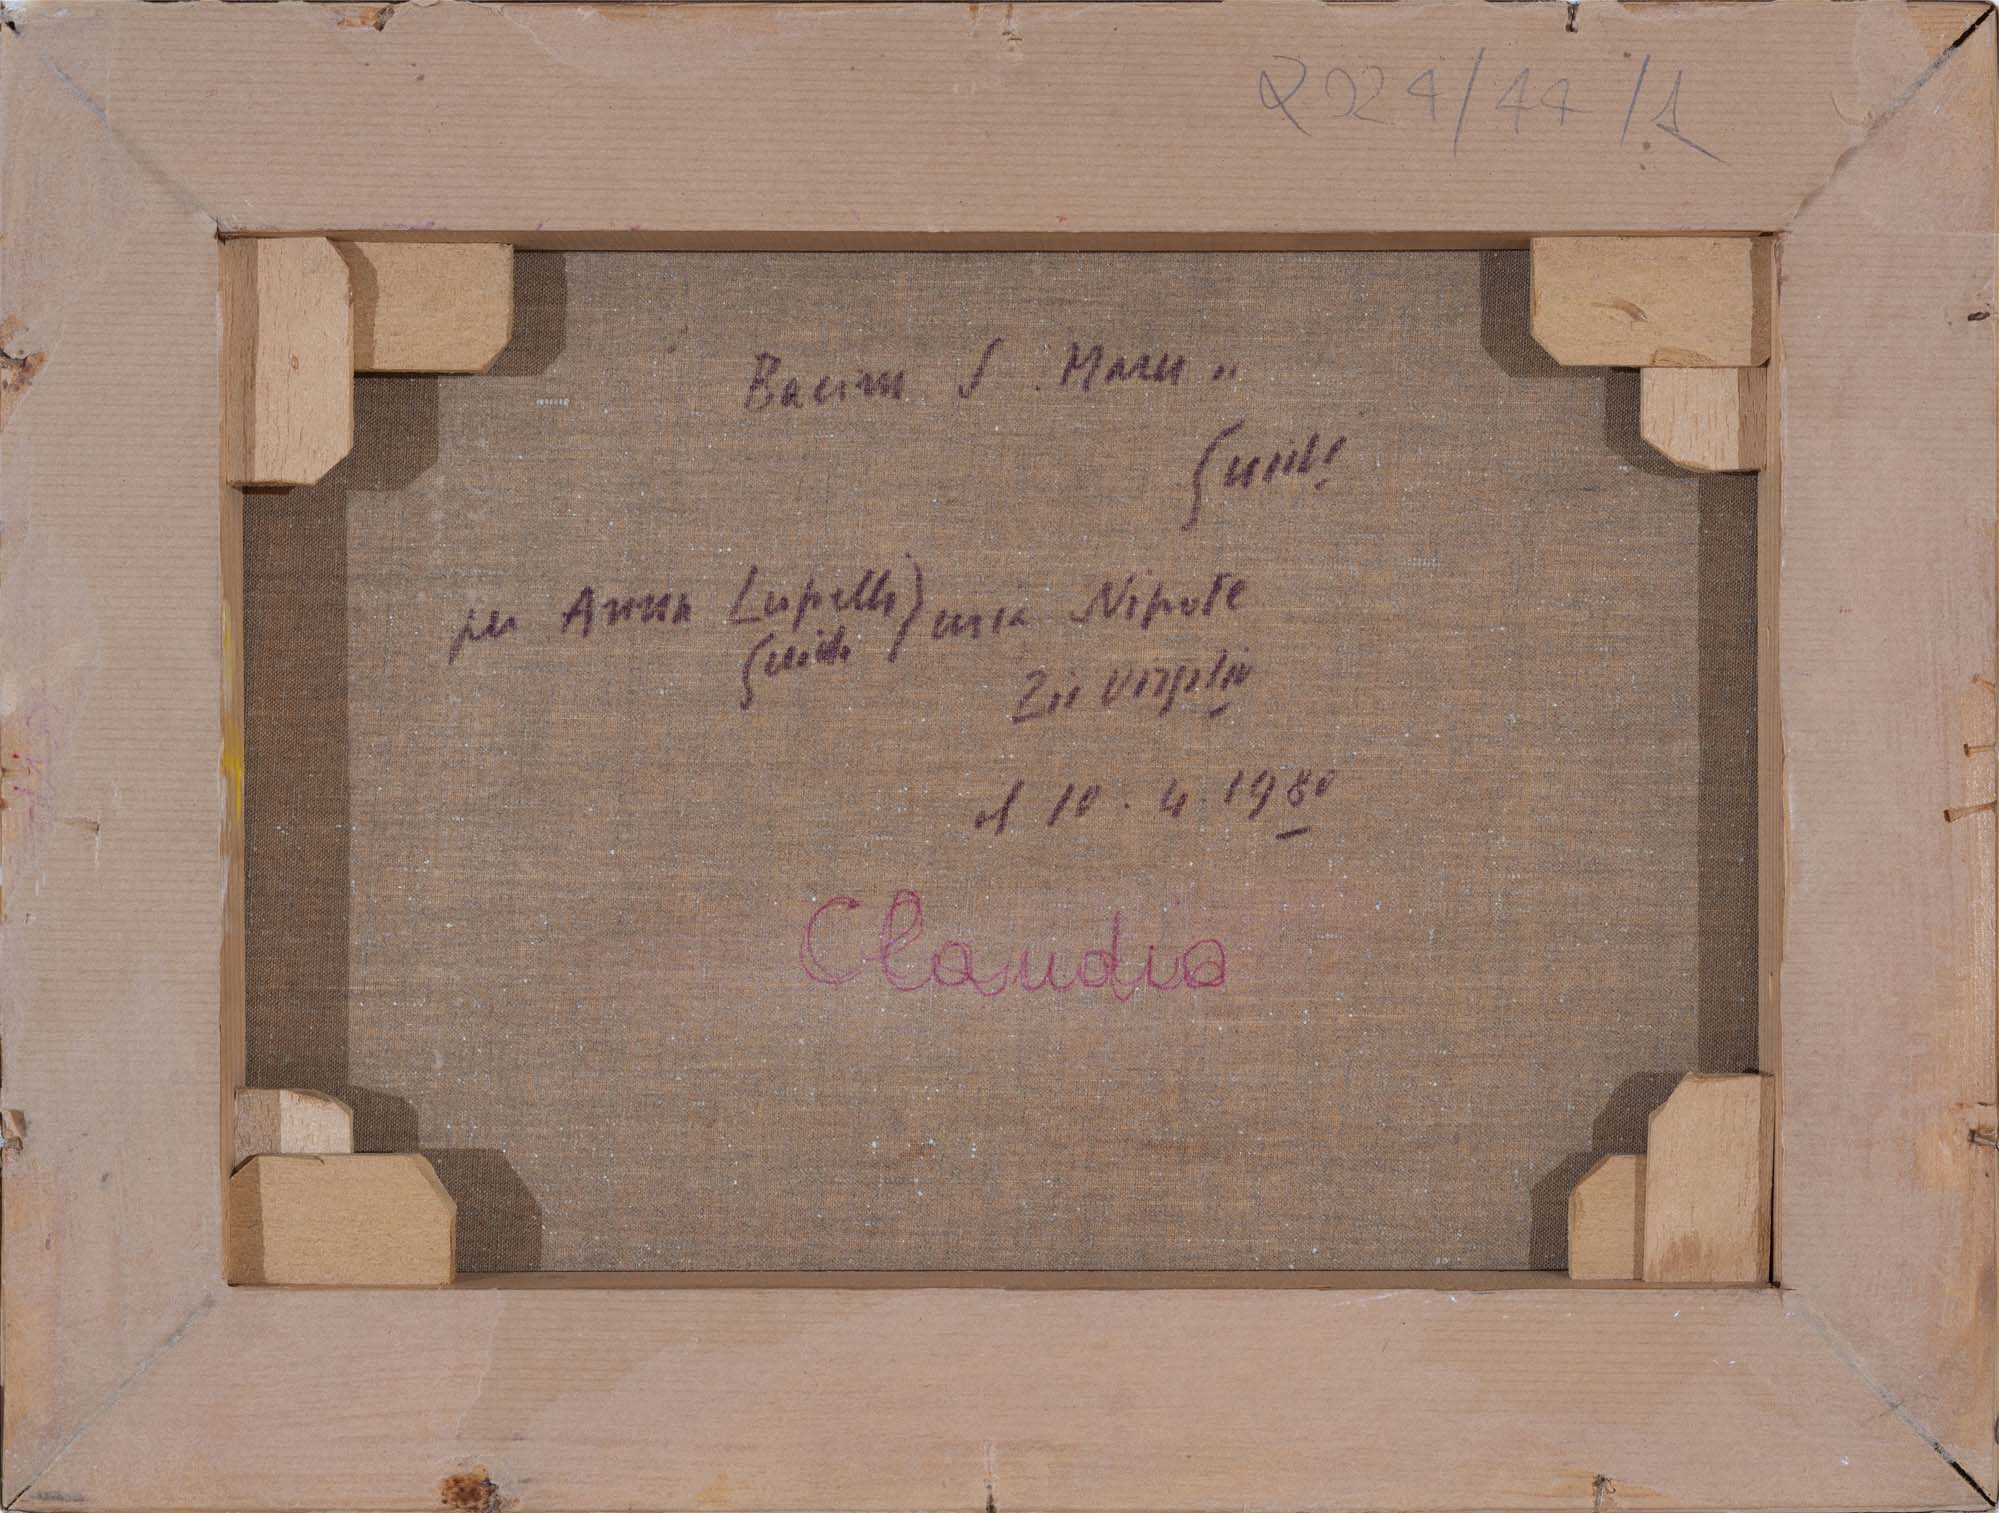 2024/44/1
Bacino S. Marco "
Guidi
per Anna Lupelli) mia Nipote
Guidi
Zio Virgilio
il 10.4.1980
Claudia